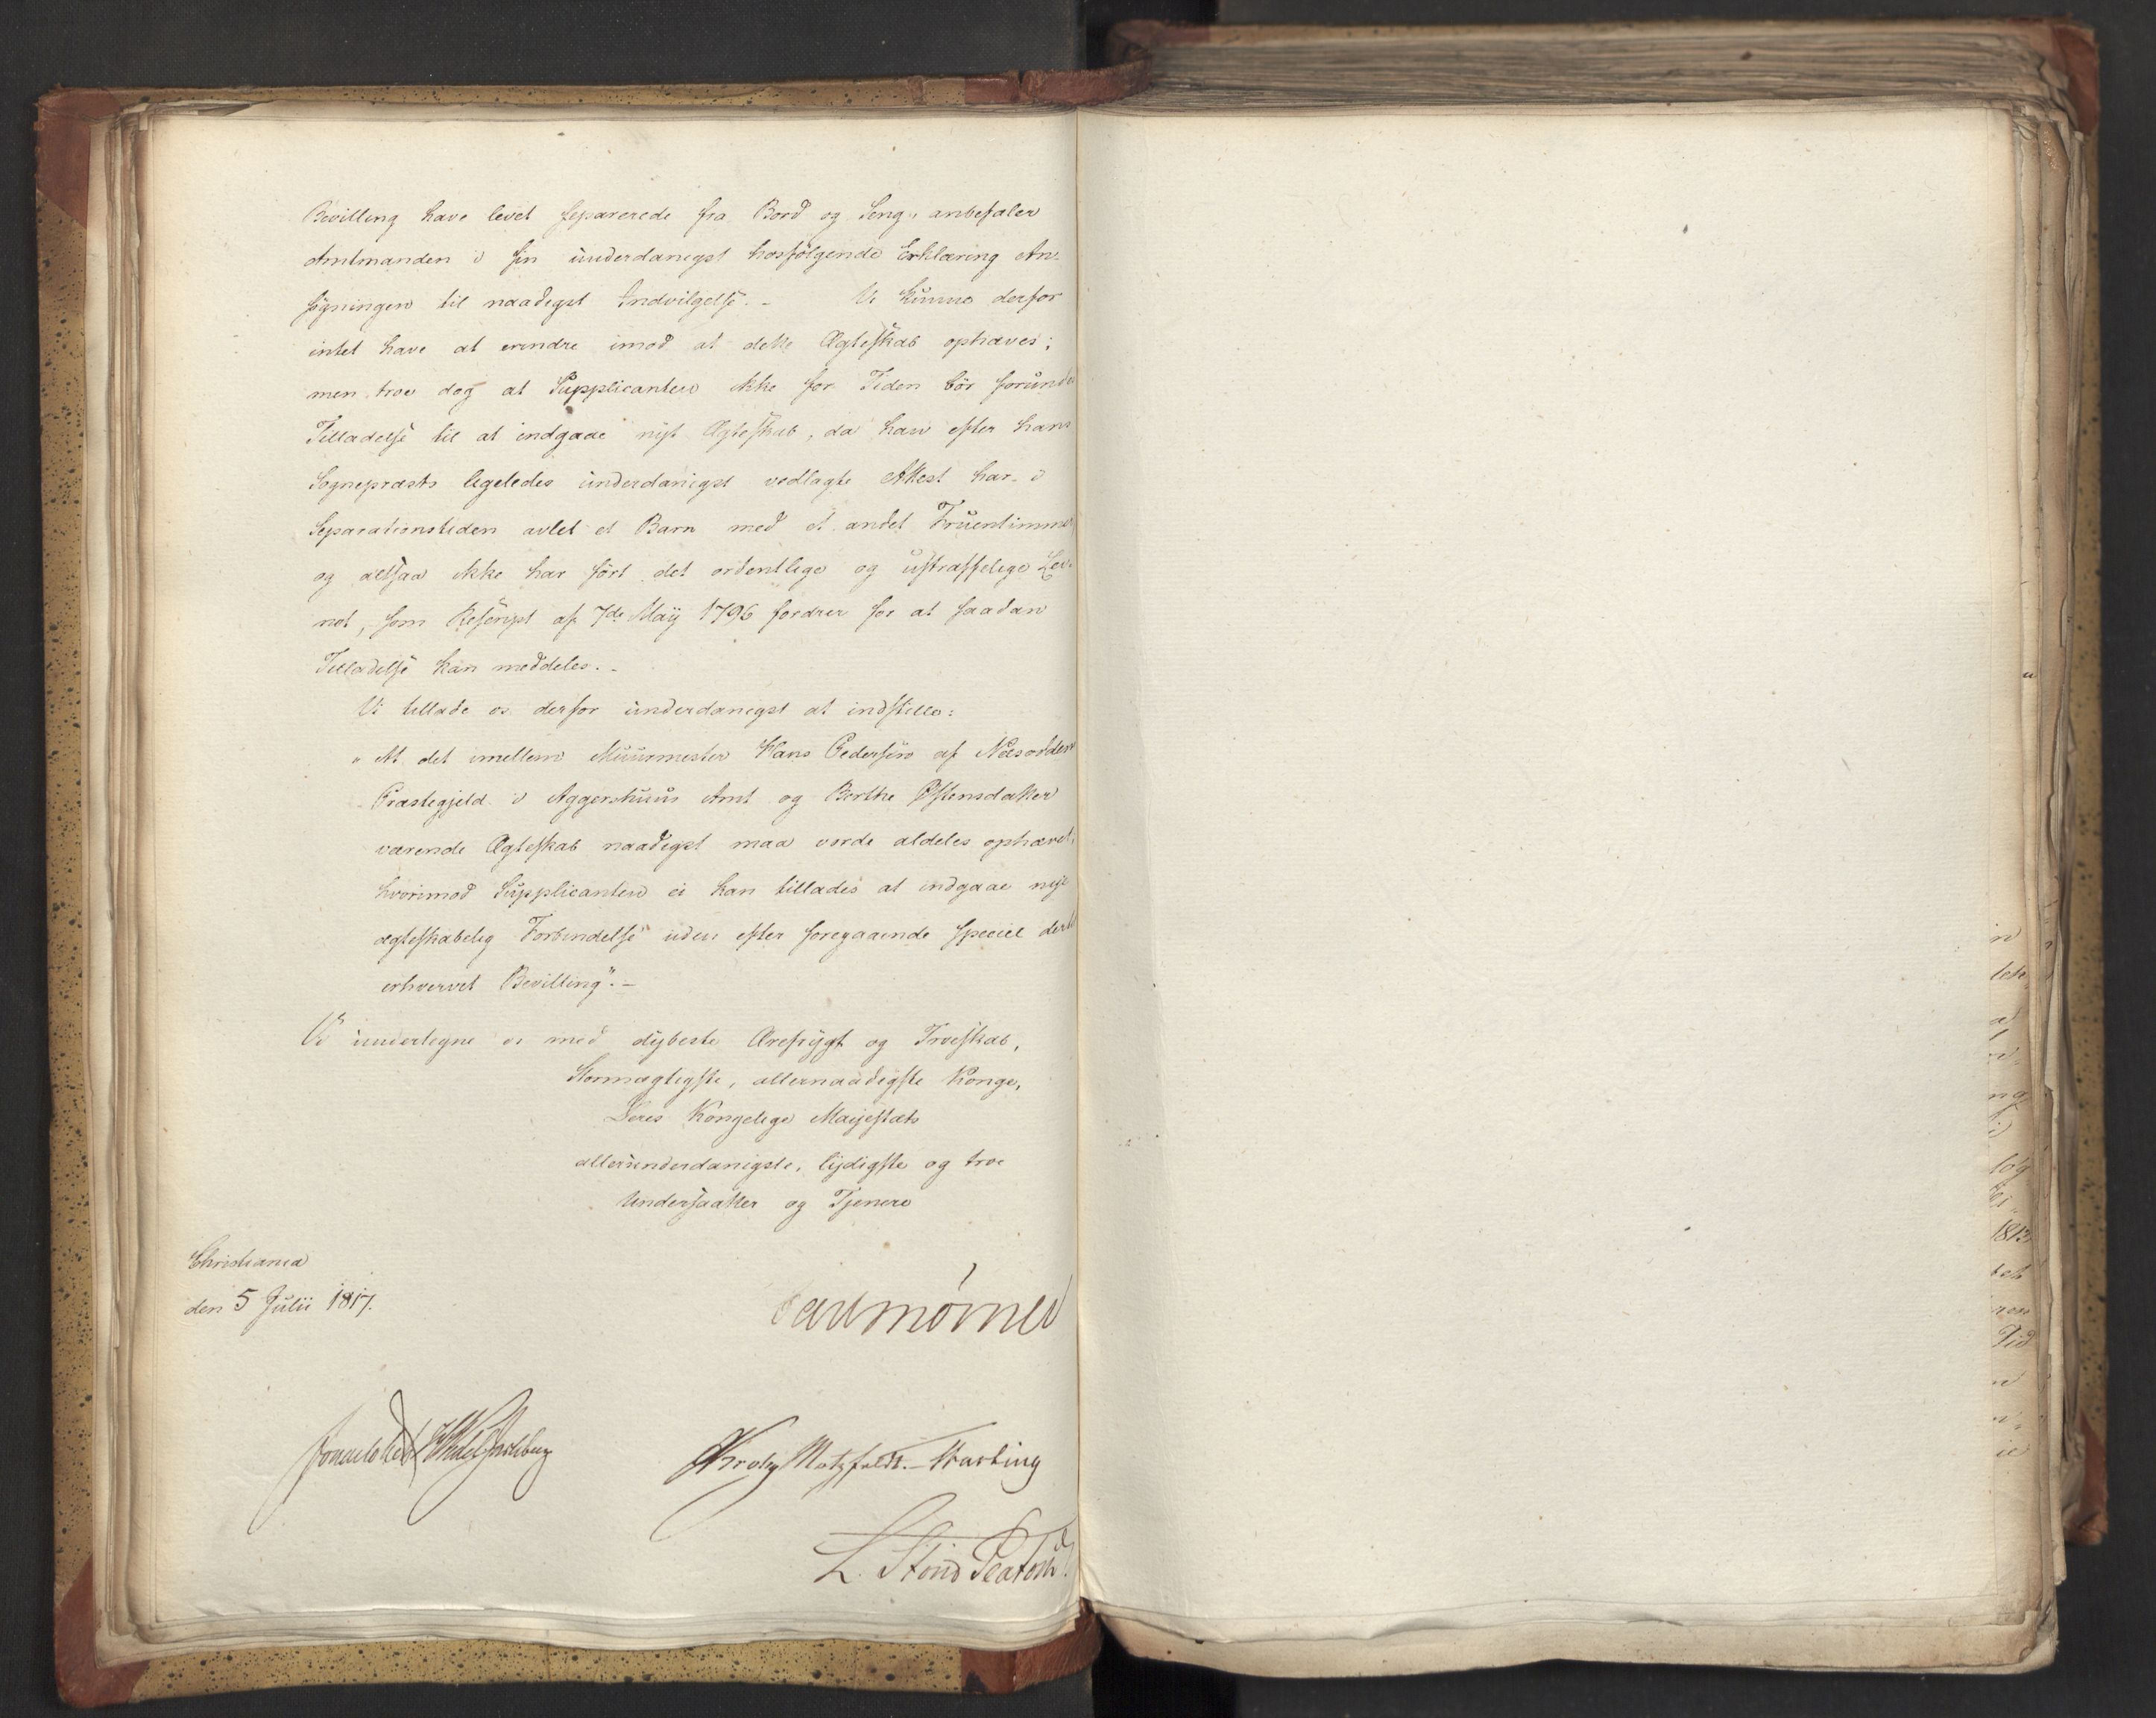 Bevilling have levet separerede fra Bord og Seng, anbefaler
Amtmanden i sin underdanigst hosfølgende Erklæring An-
søgningen til naadigst Indvilgelse. - Vi kunne derfor
intet have at erindre imod at dette Ægteskab ophæves;
men troe dog at Supplicanten ikke for Tiden bör forunde
Tilladelse til at indgaae nyt Ægteskab, da han efter hans
Sognepræsts ligeledes underdanigst vedlagte Attest har i
Separationstiden avlet et Barn med et andet Fruentimmer
og altsaa ikke har fört det ordentlige og ustraffelige Lev-
net, som Rescript af 7de Maij 1796 fordrer for at saadan
Tilladelse kan meddeles. -
Vi tillade os derfor underdanigst at indstille:
" At det imellem Muurmester Hans Pedersen af Næsodden
Præstegjeld i Aggershuus Amt og Berthe Østensdatter
værende Ægteskab naadigst maa vorde aldeles ophævet,
hvorimod Supplicanten ei kan tillades at indgaae nye
ægteskabelig Forbindelse uden efter foregaaende speciel dertil
erhvervet Bevilling". -
Vi undertegne os med dybeste Ærefrygt og Troeskab,
Stormægtigste, allernaadigste Konge,
Deres Kongelige Majestæts
allerunderdanigste, lydigste og troe
Undersaatter og Tjenere
Christiania
den 5 Julii 1817.
Carl Mörner
Jonas Collett HWedel Jarlsberg
Krohg Motzfeldt. - Hasting
L. Stoud Platou
in
1813
ren
Tid